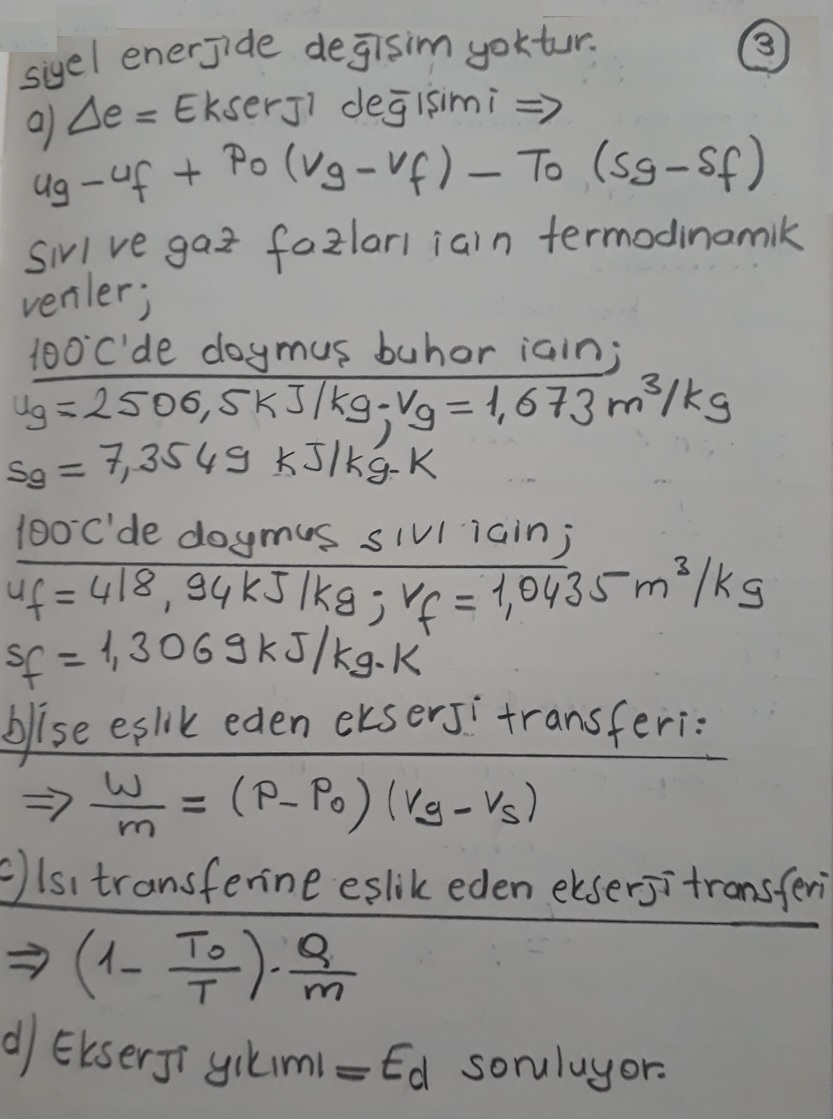 ③
siyel enerjide değişim yoktur.
a) Δe = Ekserji değişimi ⇒
ug - uf + Po (Vg - Vf) - To (Sg - Sf)
Sıvı ve gaz fazları için termodinamik
veriler;
100°C'de doymuş buhar için;
ug = 2506,5 kJ/kg; Vg = 1,673 m³/kg
Sg = 7,3549 kJ/kg-K
100°C'de doymuş sıvı için;
uf = 418,94 kJ/kg; Vf = 1,0435 m³/kg
Sf = 1,3069 kJ/kg-K
b) İşe eşlik eden ekserji transferi:
⇒ W/m = (P - Po) (Vg - Vs)
c) Isı transferine eşlik eden ekserji transferi
⇒ (1 - To/T) · Q/m
d) Ekserji yıkımı = Ed soruluyor.